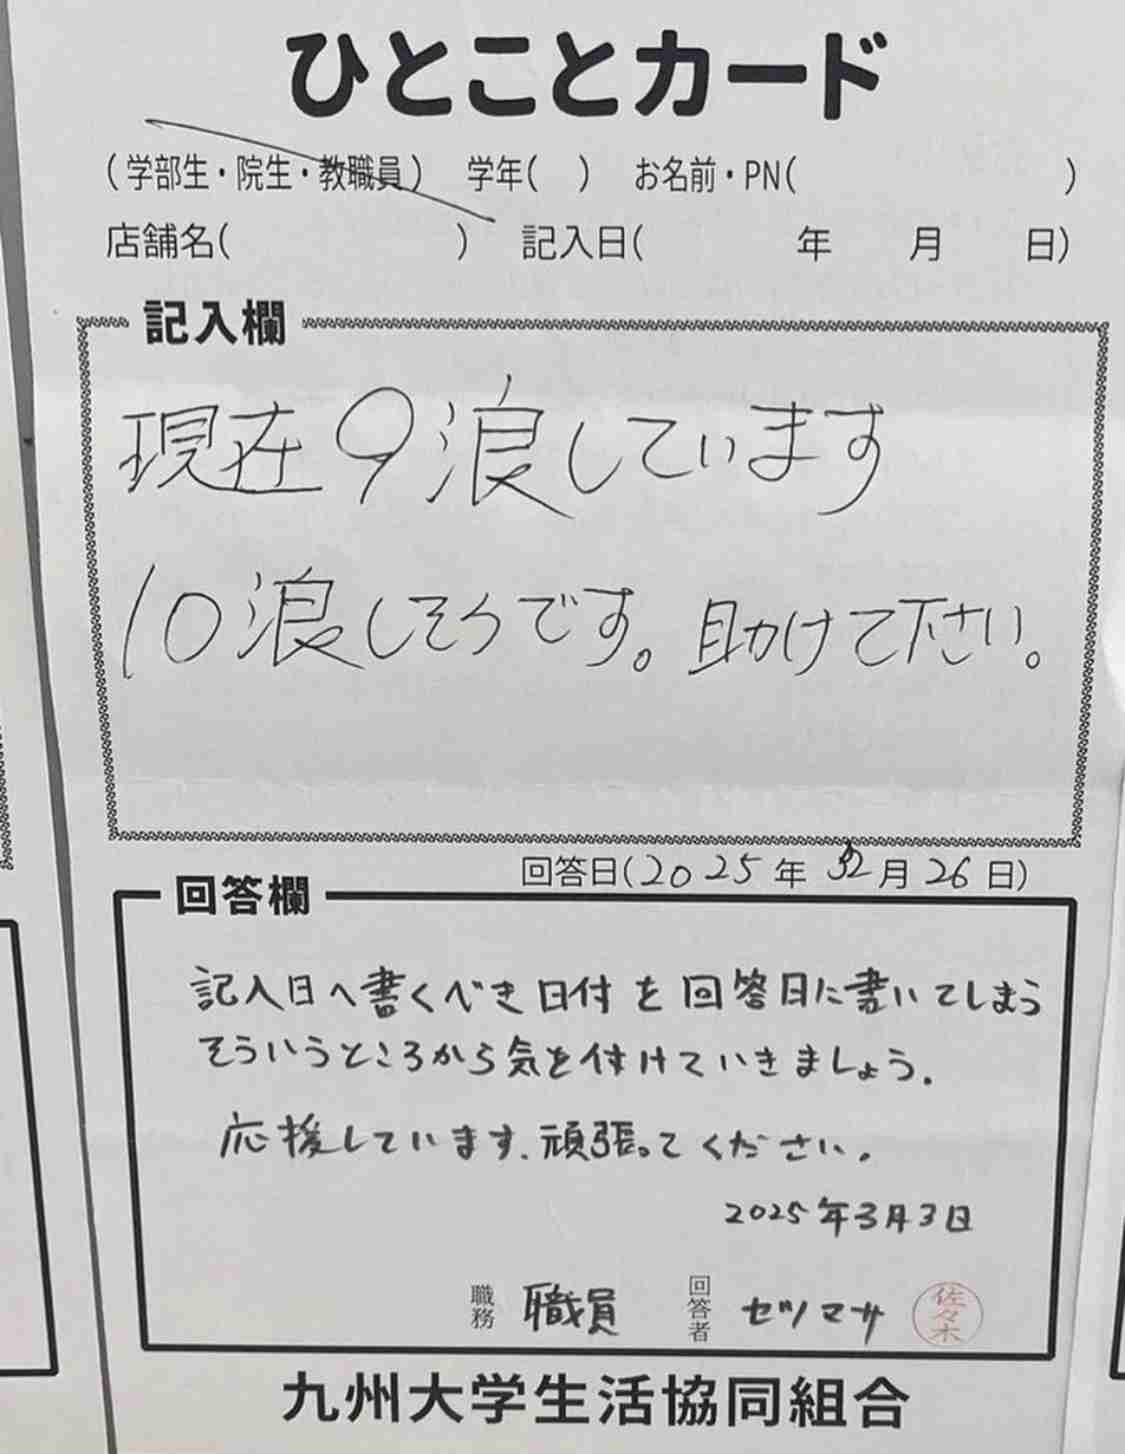 ひとことカード
(学部生・院生・教職員) 学年( ) お名前・PN( )
店舗名( ) 記入日( 年 月 日)
記入欄
現在9浪しています
10浪しそうです。助けて下さい。
回答日(2025年 2月26日)
回答欄
記入日へ書くべき日付を回答日に書いてしまう
そういうところから気を付けていきましょう。
応援しています。頑張ってください。
2025年3月3日
職務 職員 回答者 ゼツマサ 佐々木
九州大学生活協同組合